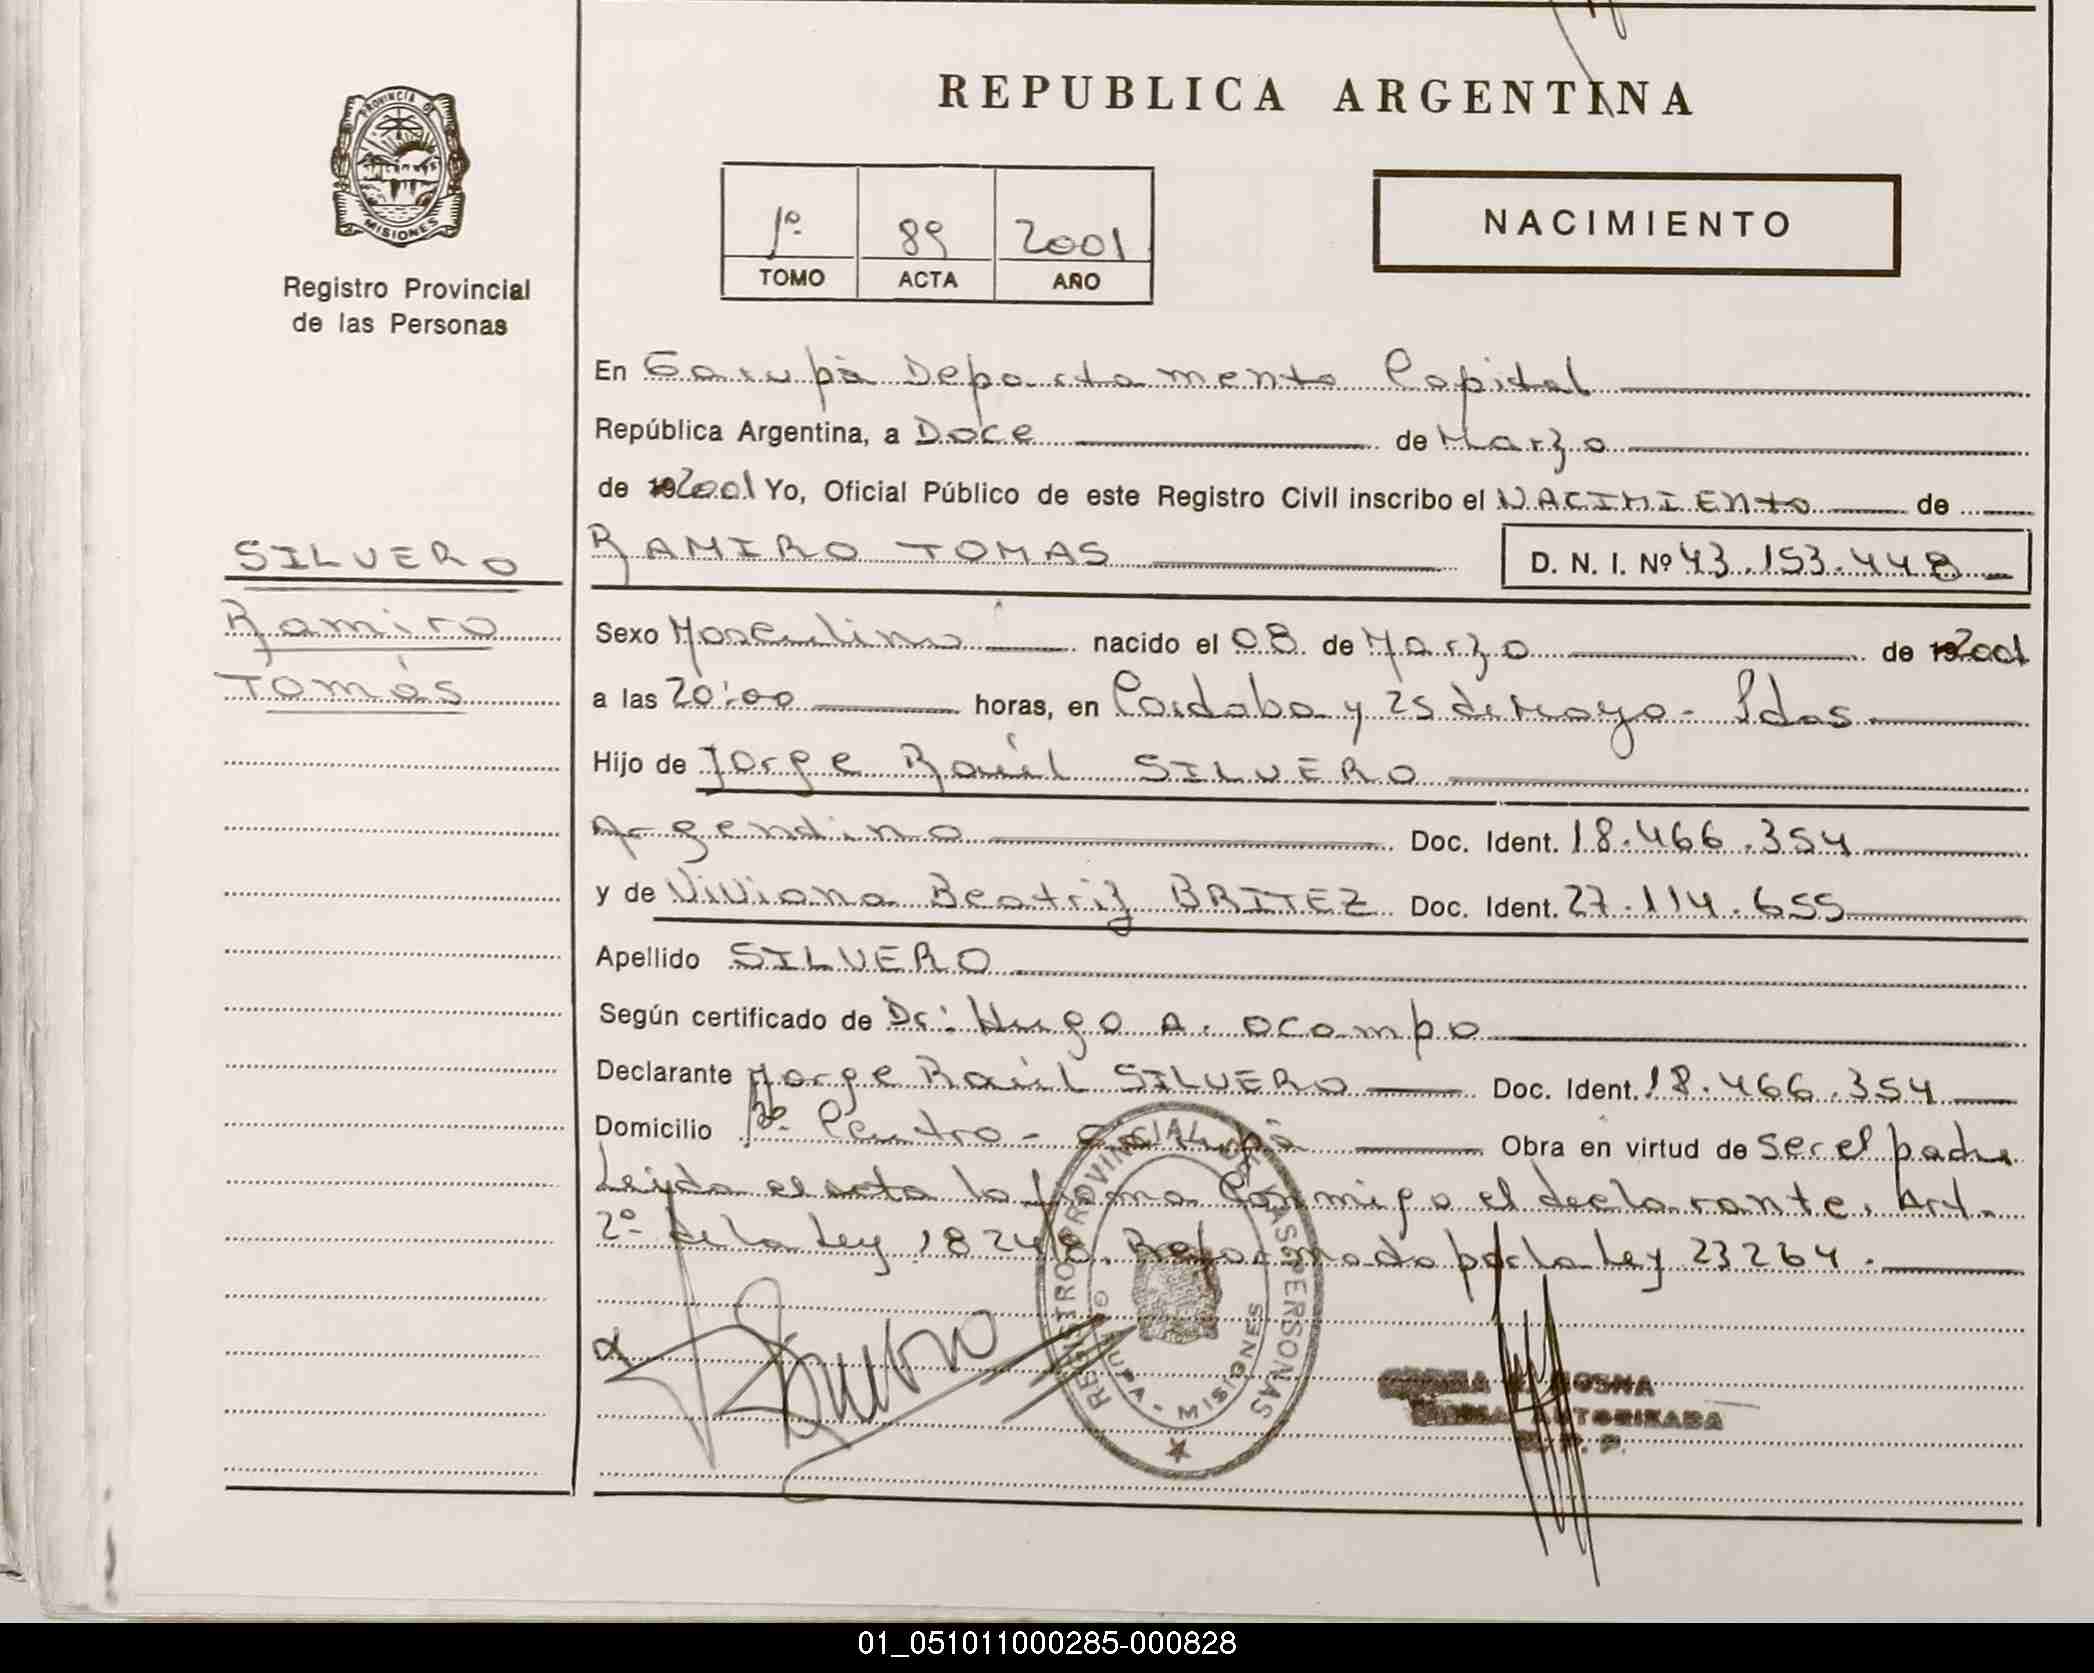 REPUBLICA ARGENTINA
PROVINCIA D
MISIONES
Registro Provincial
de las Personas
1º 89 2001
TOMO ACTA AÑO
NACIMIENTO
En Garupá Departamento Capital
República Argentina, a Doce de Marzo
de 192001 Yo, Oficial Público de este Registro Civil inscribo el NACIMIENTO de
SILVERO
RAMIRO TOMAS D. N. I. Nº 43.153.448
Ramiro
Sexo Masculino nacido el 08 de Marzo de 192001
Tomás
a las 20:00 horas, en Cordoba y 25 de Mayo - Pdas
Hijo de Jorge Raúl SILVERO
Argentino Doc. Ident. 18.466.354
y de Viviana Beatriz BRITEZ Doc. Ident. 27.114.655
Apellido SILVERO
Según certificado de Dr: Hugo A. Ocampo
Declarante Jorge Raúl SILVERO Doc. Ident. 18.466.354
Domicilio Bº Centro - Garupá Obra en virtud de ser el padre
Leida el acta la firma Conmigo el declarante. Art.
2º de la Ley 18248. Reformado por la Ley 23264.
REGISTRO PROVINCIAL DE LAS PERSONAS
MISIONES
AUTORIZADA
R. P. P.
01_051011000285-000828